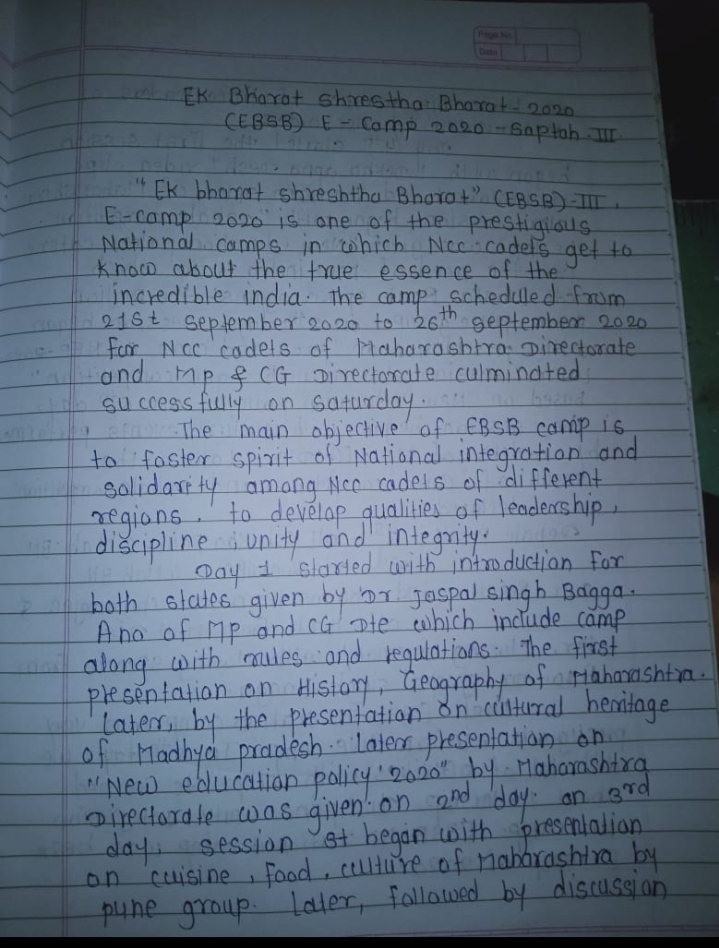 Page No.
Date
EK Bharat Shrestha Bharat - 2020
(EBSB) E - Camp 2020 - Saptah III
"Ek bharat shreshtha Bharat" (EBSB)-III,
E-camp 2020 is one of the prestigious
National camps in which Ncc cadets get to
know about the true essence of the
incredible india. The camp scheduled from
21st September 2020 to 26th September 2020
for Ncc cadets of Maharashtra Directorate
and MP & CG Directorate culminated
successfully on Saturday.
The main objective of EBSB camp is
to foster spirit of National integration and
solidarity among Ncc cadets of different
regions. to develop qualities of leadership,
discipline, unity and integrity.
Day 1 started with introduction for
both states given by Dr. Jaspal singh Bagga.
Ano of MP and CG Dte which include camp
along with rules and regulations. The first
presentation on History, Geography of Maharashtra.
Later, by the presentation on cultural heritage
of Madhya pradesh. Later presentation on
"New education policy '2020" by Maharashtra
Directorate was given on 2nd day. on 3rd
day, session st began with presentation
on cuisine, food, culture of Maharashtra by
pune group. Later, followed by discussion